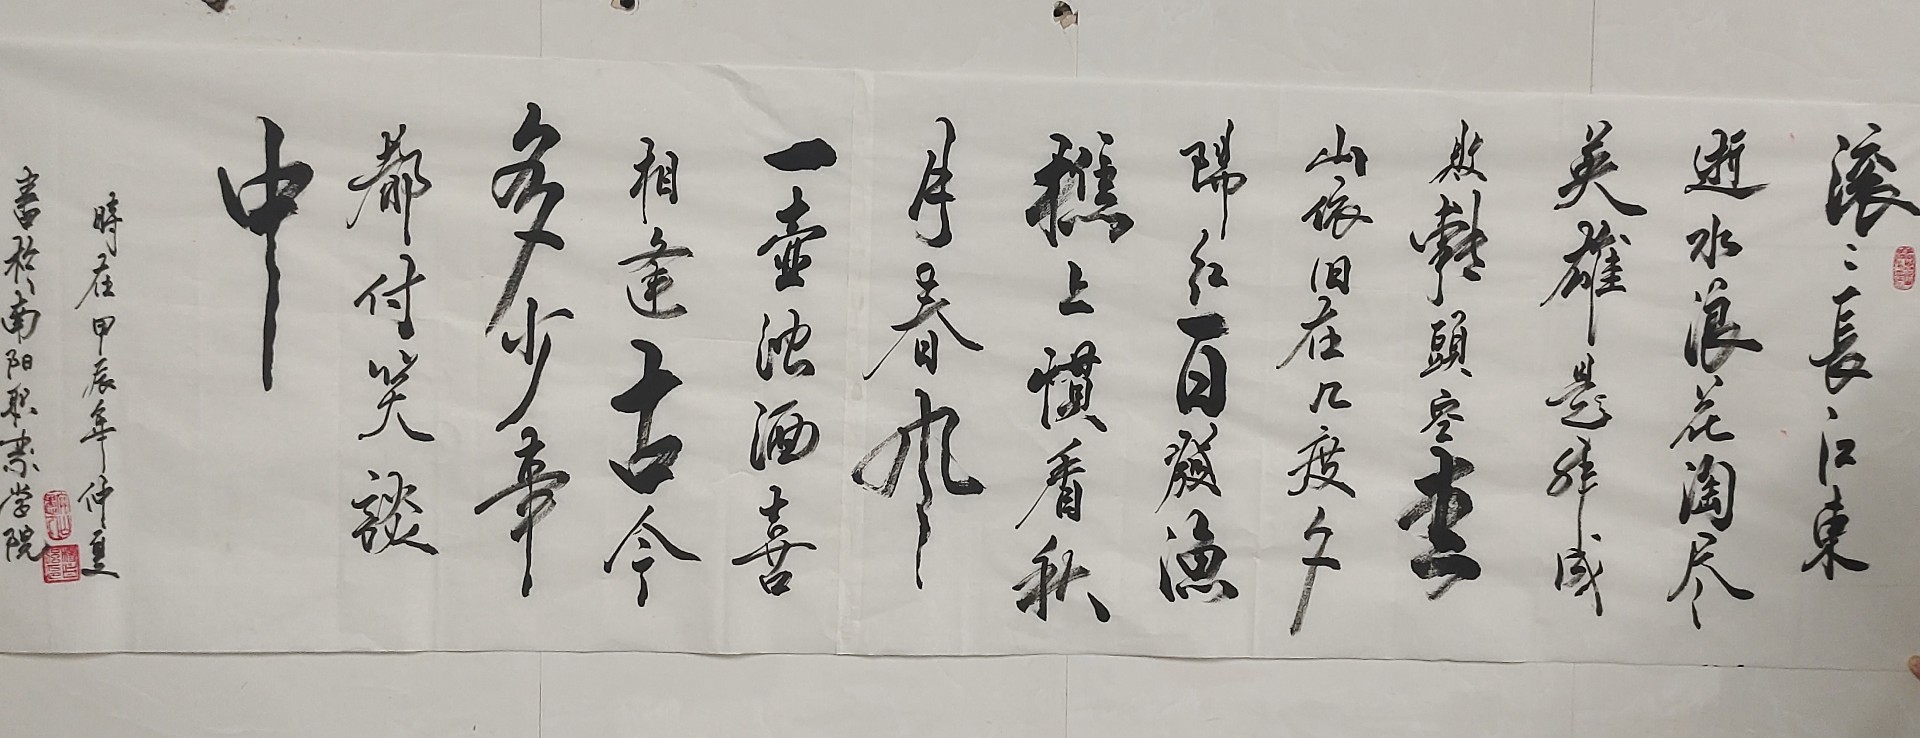 滚滚長江東
逝水浪花淘尽
英雄是非成
敗轉頭空青
山依旧在几度夕
陽红白髮渔
樵上慣看秋
月春风
一壶浊酒喜
相逢古今
多少事
都付笑談
中
時在甲辰年仲夏
書於南阳职業学院